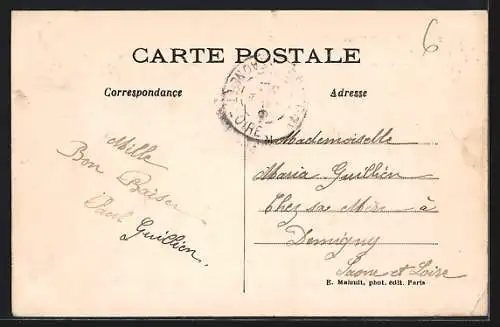 6
CARTE POSTALE
Correspondance
Adresse
LOIRE
Mille
Bon Baiser
Paul
Guillien.
Mademoiselle
Maria Guillien
Chez sa Mère à
Demigny
Saone et Loire
E. Malcuit, phot. édit. Paris